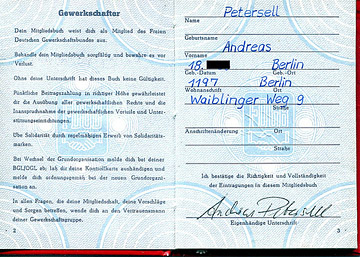 Gewerkschafter
Dein Mitgliedsbuch weist dich als Mitglied des Freien
Deutschen Gewerkschaftsbundes aus.
Behandle dein Mitgliedsbuch sorgfältig und bewahre es vor
Verlust.
Ohne deine Unterschrift hat dieses Buch keine Gültigkeit.
Pünktliche Beitragszahlung in richtiger Höhe gewährleistet
dir die Ausübung aller gewerkschaftlichen Rechte und die
Inanspruchnahme der gewerkschaftlichen Vorteile und Unter-
stützungseinrichtungen.
Übe Solidarität durch regelmäßigen Erwerb von Solidaritäts-
marken.
Bei Wechsel der Grundorganisation melde dich bei deiner
BGL/OGL ab, laß dir deine Kontrollkarte aushändigen und
melde dich ordnungsgemäß bei der neuen Grundorganisa-
tion an.
In allen Fragen, die deine Mitgliedschaft, deine Vorschläge
und Sorgen betreffen, wende dich an den Vertrauensmann
deiner Gewerkschaftsgruppe.
2
Petersell
Name
Geburtsname
Andreas
Vorname
18. Berlin
Geb.-Datum Geb.-Ort
1197 Berlin
Wohnanschrift Ort
Waiblinger Weg 9
Straße
Anschriftenänderung Ort
Straße
Ich bestätige die Richtigkeit und Vollständigkeit
der Eintragungen in diesem Mitgliedsbuch
Andreas Petersell
Eigenhändige Unterschrift
3